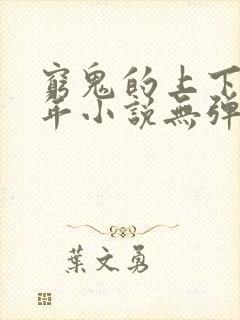 窮鬼的上下
年小說無彈
葉文勇